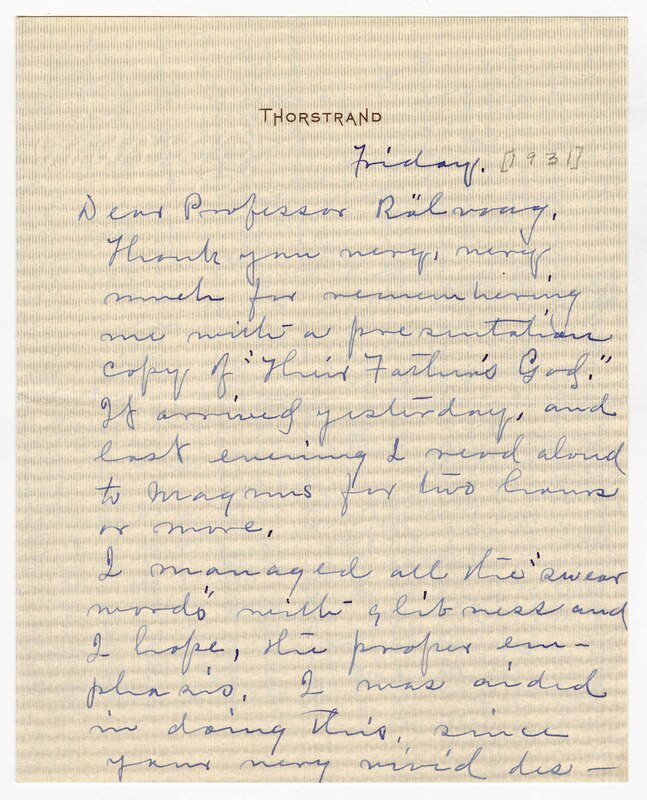 THORSTRAND
Friday. [1931]
Dear Professor Rölvaag,
Thank you very, very
much for remembering
me with a presentation
copy of "Their Father's God."
It arrived yesterday, and
last evening I read aloud
to Magnus for two hours
or more.
I managed all the "swear
words" with glibness and
I hope, the proper em-
phasis. I was aided
in doing this, since
your very vivid des-